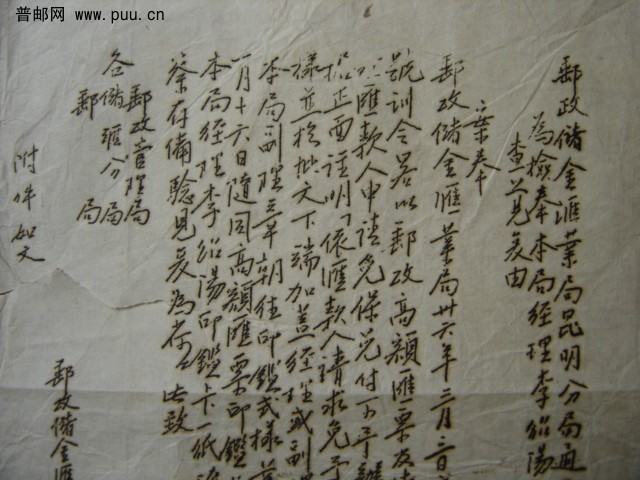 普邮网 www.puu.cn
郵政儲金滙業局昆明分局通
為檢奉本局經理李紹陽
查並見复由
案奉
郵政儲金滙業局卅六年三月三日
號訓令畧以郵政高額匯票及
匯款人申請免保兑付不予辦
据正面註明「依匯款人請求免予
樣並於批文下端加盖經理或副
本局副理 朝 印鑑式樣
一月十六日隨同高額匯票印鑑
本局經理李紹陽印鑑卡一紙
察存備驗見复為荷此致
郵政管理局
各儲滙分局
郵 局
附件如文
郵政儲金滙